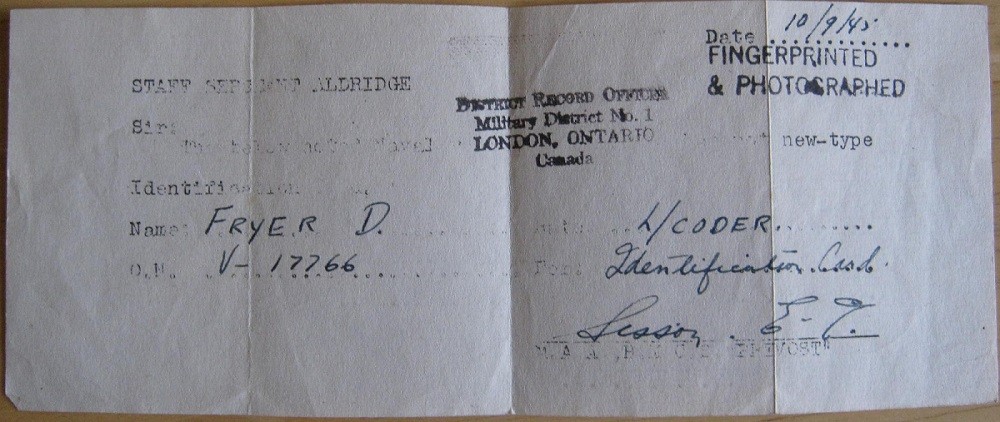 Date 10/9/45
FINGERPRINTED
& PHOTOGRAPHED
STAFF SERGEANT ALDRIDGE
DISTRICT RECORD OFFICER
Military District No. 1
LONDON, ONTARIO
Canada
Sir:
new-type
Identification
Name: FRYER D.
L/CODER
O.N. V-17766
For: Identification Card.
"PREVOST"